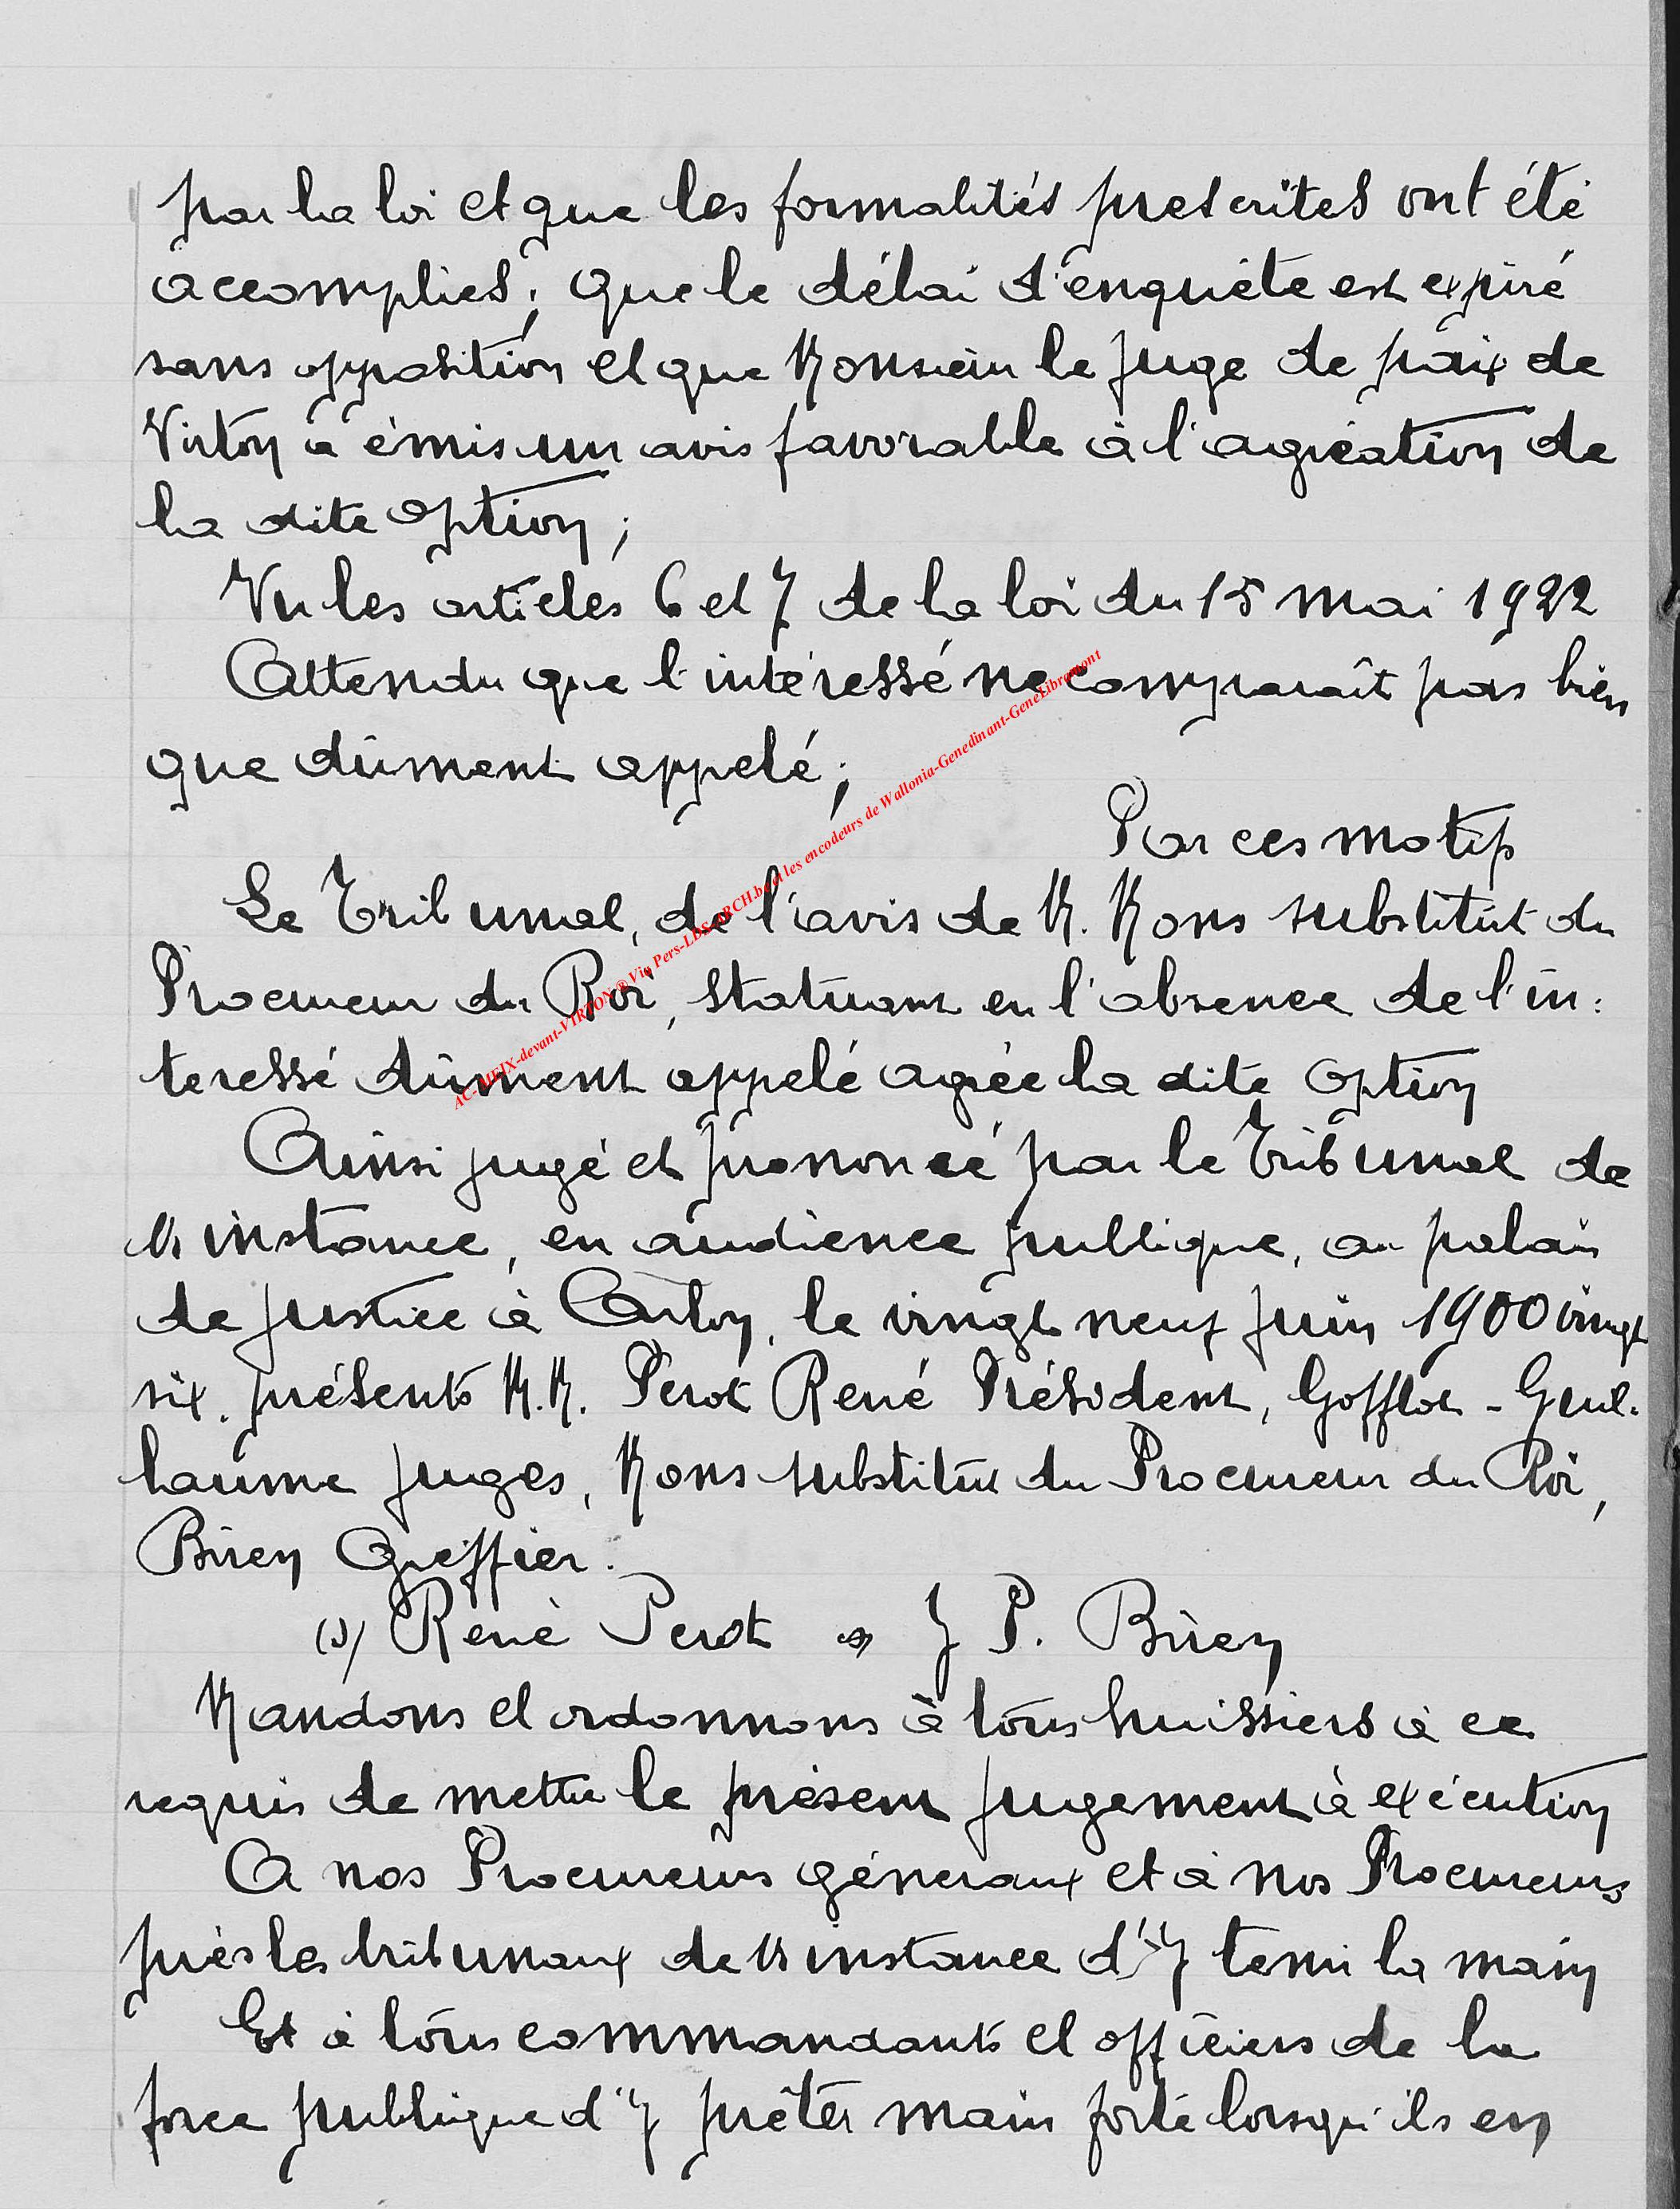 par la loi et que les formalités prescrites ont été
accomplies; que le délai d'enquête est expiré
sans opposition et que Monsieur le Juge de paix de
Virton a émis un avis favorable à l'agréation de
la dite option;
Vu les articles 6 et 7 de la loi du 15 mai 1922
Attendu que l'intéressé ne comparaît pas bien
que dûment appelé;
Par ces motifs
Le Tribunal, de l'avis de M. Mons substitut du
Procureur du Roi, statuant en l'absence de l'in:
teressé dûment appelé agrée la dite option
Ainsi jugé et prononcé par le Tribunal de
1re instance, en audience publique, au palais
de justice à Arlon, le vingt neuf juin 1900 vingt
six. présents M.M. Perot René Président, Gofflot - Guil-
laume juges, Mons substitut du Procureur du Roi,
Biren Greffier.
(s) René Perot J P. Biren
Mandons et ordonnons à tous huissiers à ce
requis de mettre le présent jugement à exécution
A nos Procureurs généraux et à nos Procureurs
près les tribunaux de 1re instance d'y tenir la main
Et à tous commandants et officiers de la
force publique d'y prêter main forte lorsqu'ils en
AC-MEIX-devant-VIRTON ® Via Pers-LDS-ARCH.be et les encodeurs de Wallonia-Genedinant-GeneLibramont